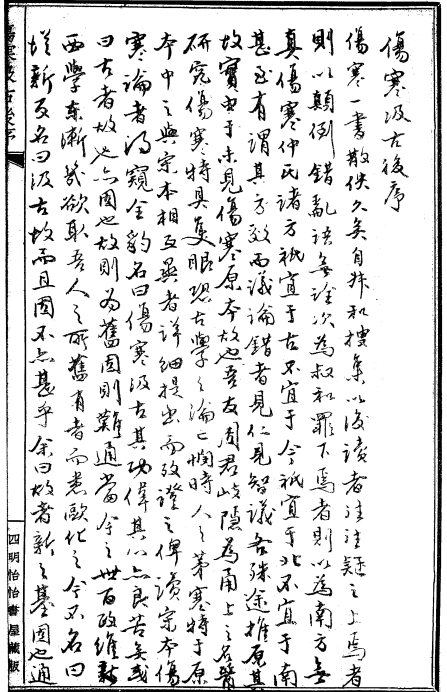 傷寒汲古後序
傷寒一書散佚久矣自叔和搜集以後讀者往往疑之上焉者
則以顛倒錯亂語無詮次為叔和罪下焉者則以為南方無
真傷寒仲氏諸方祇宜于古不宜于今祇宜于北不宜于南
甚至有謂其方效而議論錯者見仁見智議各殊途推原其
故實由于未見傷寒原本故也吾友周君岐隱為甬上之名醫
研究傷寒特具隻眼恐古學之論亡憫時人之茅塞特于原
本中之與宋本相互異者詳細提出而攷證之俾讀宋本傷
寒論者得窺全豹名曰傷寒汲古其功偉其心亦良苦矣或
曰古者故也亦固也故則為舊固則難通當今之世百政維新
西學東漸幾欲取吾人之所舊有者而悉歐化之今不名曰
增新反名曰汲古故而且固不亦甚乎余曰故者新之基固也通
四明怡怡書屋藏版